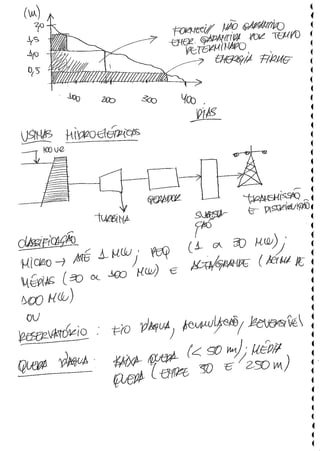 (m)
2,0
1,5
1,0
0,5
100 200 300 400
DIAS
NÃO GARANTIDO
ENER GARANTIDA POR TEMPO
DETERMINADO
ENERGIA FIRME
USINAS HIDROELÉTRICAS
TURBINA
GERADOR
SUBESTA
ÇÃO
TRANSMISSÃO
E DISTRIBUIÇÃO
CLASSIFICAÇÃO
MICRO → ATÉ 1 MW; PEQ (1 a 30 MW);
MÉDIAS (30 a 100 MW) E ALTA/GRANDE (ACIMA DE
100 MW)
OU
RESERVATÓRIO: FIO D'ÁGUA, ACUMULAÇÃO, REVERSÍVEL
QUEDA D'ÁGUA. BAIXA QUEDA (< 50 m); MÉDIA
QUEDA (ENTRE 50 E 250 m)